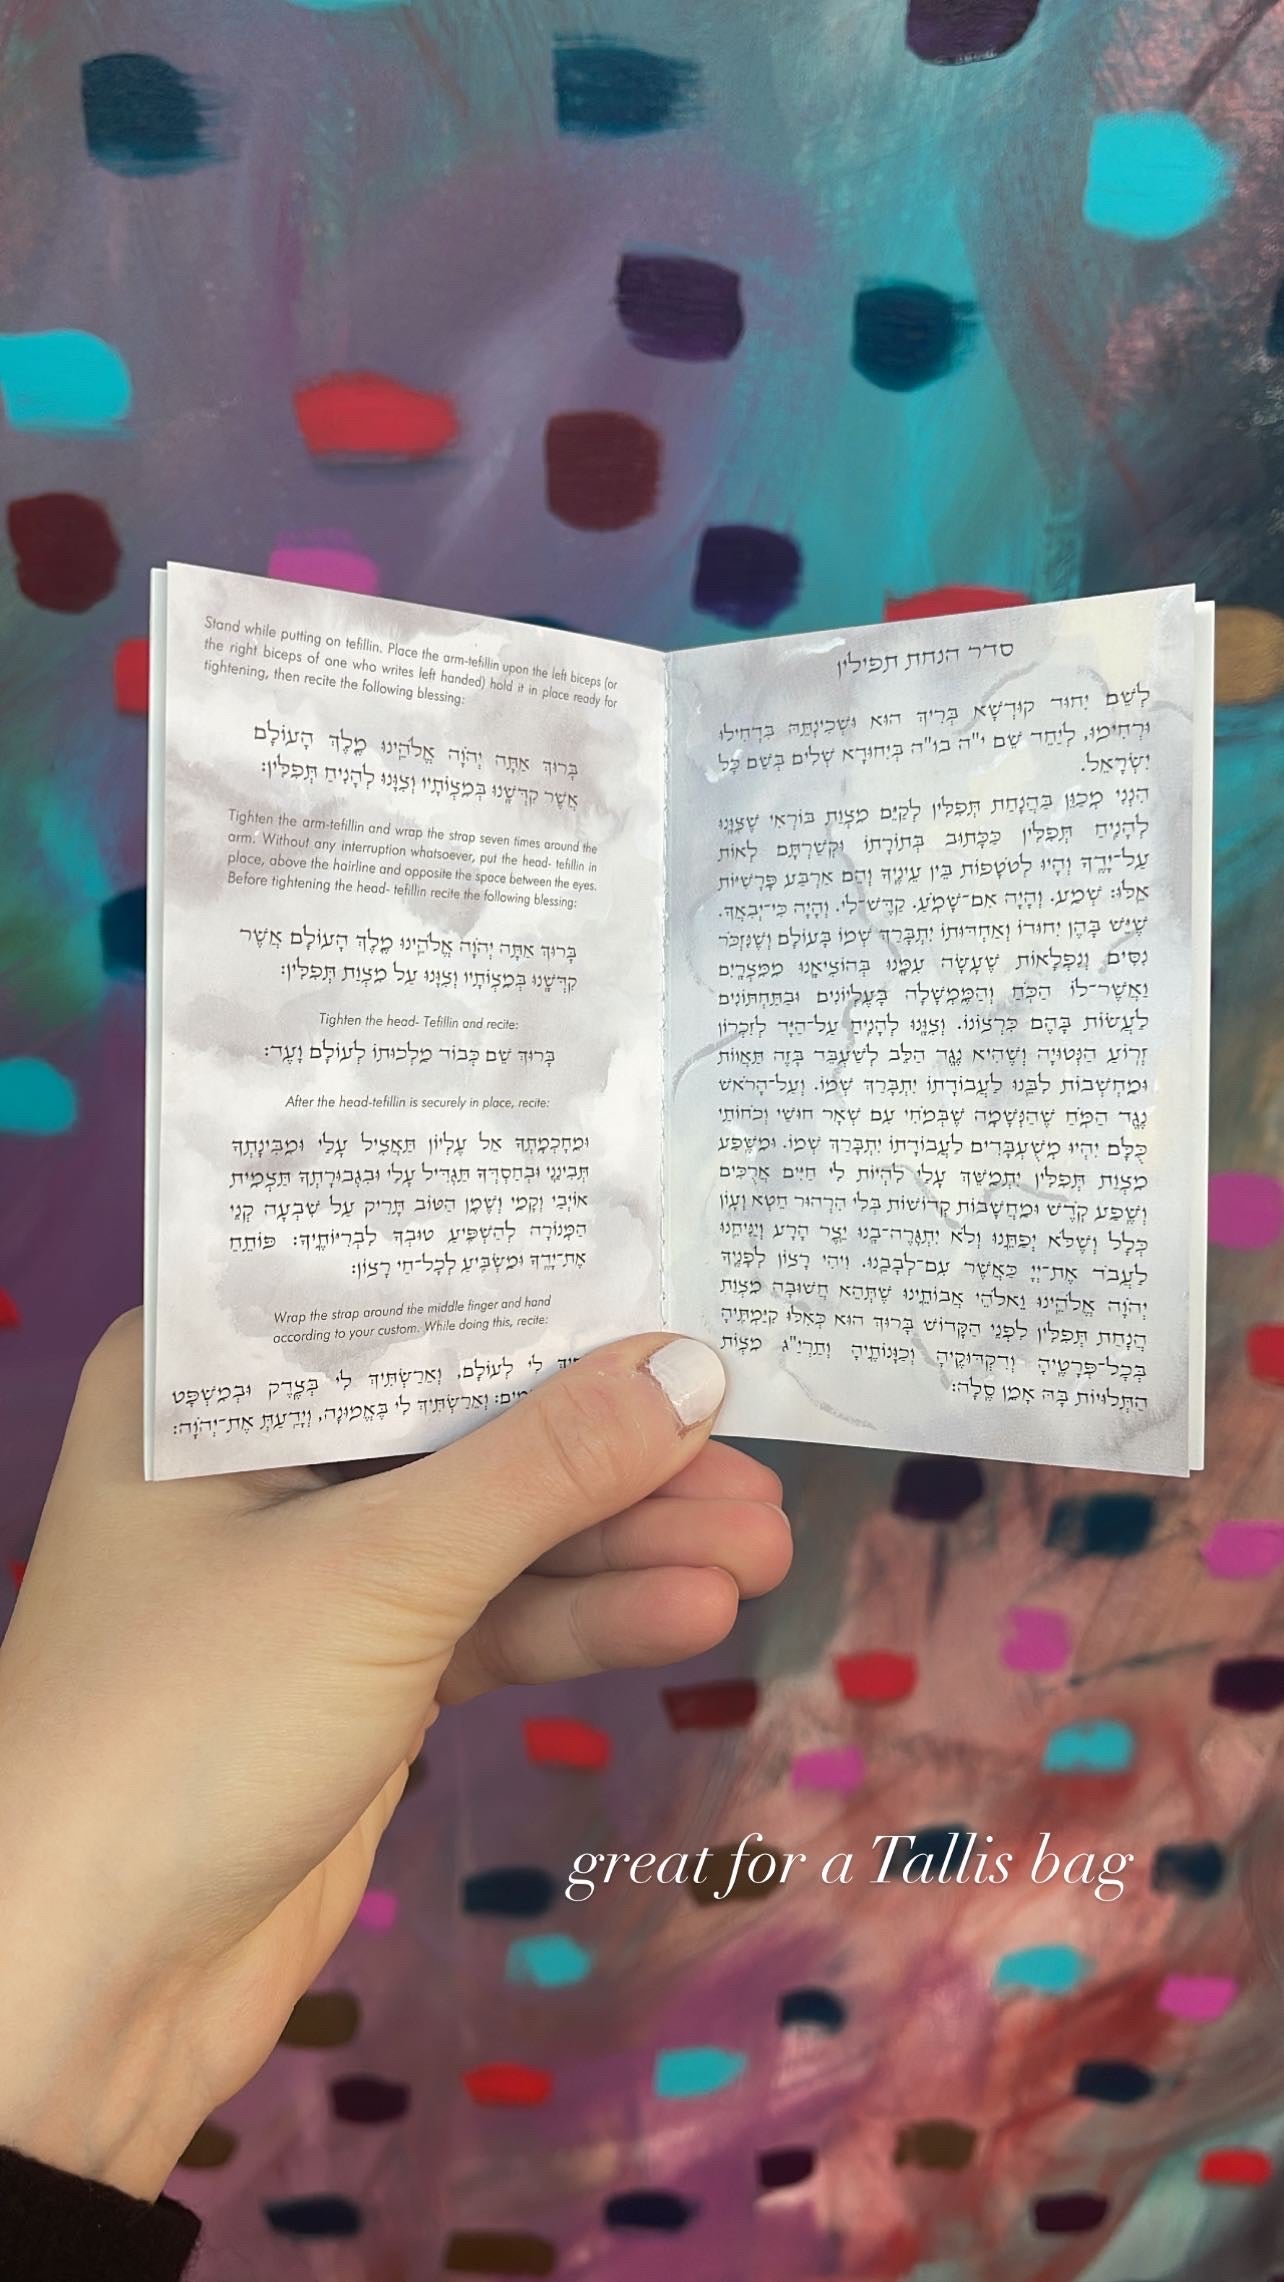 סדר הנחת תפילין
לְשֵׁם יִחוּד קוּדְשָׁא בְּרִיךְ הוּא וּשְׁכִינְתֵּהּ בִּדְחִילוּ
וּרְחִימוּ, לְיַחֵד שֵׁם י"ה בו"ה בְּיִחוּדָא שְׁלִים בְּשֵׁם כָּל
יִשְׂרָאֵל.
הִנְנִי מְכַוֵּן בַּהֲנָחַת תְּפִלִּין לְקַיֵּם מִצְוַת בּוֹרְאִי שֶׁצִּוָּנוּ
לְהָנִיחַ תְּפִלִּין כַּכָּתוּב בְּתוֹרָתוֹ וּקְשַׁרְתָּם לְאוֹת
עַל־יָדֶךָ וְהָיוּ לְטֹטָפוֹת בֵּין עֵינֶיךָ וְהֵם אַרְבַּע פָּרָשִׁיּוֹת
אֵלּוּ: שְׁמַע. וְהָיָה אִם־שָׁמֹעַ. קַדֶּשׁ־לִי. וְהָיָה כִּי־יְבִאֲךָ.
שֶׁיֵּשׁ בָּהֶן יִחוּדוֹ וְאַחְדוּתוֹ יִתְבָּרַךְ שְׁמוֹ בָּעוֹלָם וְשֶׁנִּזְכֹּר
נִסִּים וְנִפְלָאוֹת שֶׁעָשָׂה עִמָּנוּ בְּהוֹצִיאָנוּ מִמִּצְרָיִם
וַאֲשֶׁר־לוֹ הַכֹּחַ וְהַמֶּמְשָׁלָה בָּעֶלְיוֹנִים וּבַתַּחְתּוֹנִים
לַעֲשׂוֹת בָּהֶם כִּרְצוֹנוֹ. וְצִוָּנוּ לְהָנִיחַ עַל־הַיָּד לְזִכְרוֹן
זְרוֹעַ הַנְּטוּיָה וְשֶׁהִיא נֶגֶד הַלֵּב לְשַׁעְבֵּד בָּזֶה תַּאֲוֹת
וּמַחְשְׁבוֹת לִבֵּנוּ לַעֲבוֹדָתוֹ יִתְבָּרַךְ שְׁמוֹ. וְעַל־הָרֹאשׁ
נֶגֶד הַמֹּחַ שֶׁהַנְּשָׁמָה שֶׁבְּמֹחִי עִם שְׁאָר חוּשַׁי וְכֹחוֹתַי
כֻּלָּם יִהְיוּ מְשֻׁעְבָּדִים לַעֲבוֹדָתוֹ יִתְבָּרַךְ שְׁמוֹ. וּמִשֶּׁפַע
מִצְוַת תְּפִלִּין יִתְמַשֵּׁךְ עָלַי לִהְיוֹת לִי חַיִּים אֲרֻכִּים
וְשֶׁפַע קֹדֶשׁ וּמַחֲשָׁבוֹת קְדוֹשׁוֹת בְּלִי הַרְהוּר חֵטְא וְעָוֹן
כְּלָל וְשֶׁלֹּא יְפַתֵּנוּ וְלֹא יִתְגָּרֶה־בָנוּ יֵצֶר הָרָע וְיַנִּיחֵנוּ
לַעֲבֹד אֶת־יְיָ כַּאֲשֶׁר עִם־לְבָבֵנוּ. וִיהִי רָצוֹן לְפָנֶיךָ
יְהֹוָה אֱלֹהֵינוּ וֵאלֹהֵי אֲבוֹתֵינוּ שֶׁתְּהֵא חֲשׁוּבָה מִצְוַת
הֲנָחַת תְּפִלִּין לִפְנֵי הַקָּדוֹשׁ בָּרוּךְ הוּא כְּאִלּוּ קִיַּמְתִּיהָ
בְּכָל־פְּרָטֶיהָ וְדִקְדּוּקֶיהָ וְכַוָּנוֹתֶיהָ וְתַרְיַ"ג מִצְוֹת
הַתְּלוּיוֹת בָּהּ אָמֵן סֶלָה:
Stand while putting on tefillin. Place the arm-tefillin upon the left biceps (or
the right biceps of one who writes left handed) hold it in place ready for
tightening, then recite the following blessing:
בָּרוּךְ אַתָּה יְהֹוָה אֱלֹהֵינוּ מֶלֶךְ הָעוֹלָם
אֲשֶׁר קִדְּשָׁנוּ בְּמִצְוֹתָיו וְצִוָּנוּ לְהָנִיחַ תְּפִלִּין:
Tighten the arm-tefillin and wrap the strap seven times around the
arm. Without any interruption whatsoever, put the head- tefillin in
place, above the hairline and opposite the space between the eyes.
Before tightening the head- tefillin recite the following blessing:
בָּרוּךְ אַתָּה יְהֹוָה אֱלֹהֵינוּ מֶלֶךְ הָעוֹלָם אֲשֶׁר
קִדְּשָׁנוּ בְּמִצְוֹתָיו וְצִוָּנוּ עַל מִצְוַת תְּפִלִּין:
Tighten the head- Tefillin and recite:
בָּרוּךְ שֵׁם כְּבוֹד מַלְכוּתוֹ לְעוֹלָם וָעֶד:
After the head-tefillin is securely in place, recite:
וּמֵחָכְמָתְךָ אֵל עֶלְיוֹן תַּאֲצִיל עָלַי וּמִבִּינָתְךָ
תְּבִינֵנִי וּבְחַסְדְּךָ תַּגְדִּיל עָלַי וּבִגְבוּרָתְךָ תַּצְמִית
אוֹיְבַי וְקָמַי וְשֶׁמֶן הַטּוֹב תָּרִיק עַל שִׁבְעָה קְנֵי
הַמְּנוֹרָה לְהַשְׁפִּיעַ טוּבְךָ לִבְרִיּוֹתֶיךָ: פּוֹתֵחַ
אֶת־יָדֶךָ וּמַשְׂבִּיעַ לְכָל־חַי רָצוֹן:
Wrap the strap around the middle finger and hand
according to your custom. While doing this, recite:
לִי לְעוֹלָם, וְאֵרַשְׂתִּיךְ לִי בְּצֶדֶק וּבְמִשְׁפָּט
וְאֵרַשְׂתִּיךְ לִי בֶּאֱמוּנָה, וְיָדַעַתְּ אֶת־יְהֹוָה:
great for a Tallis bag